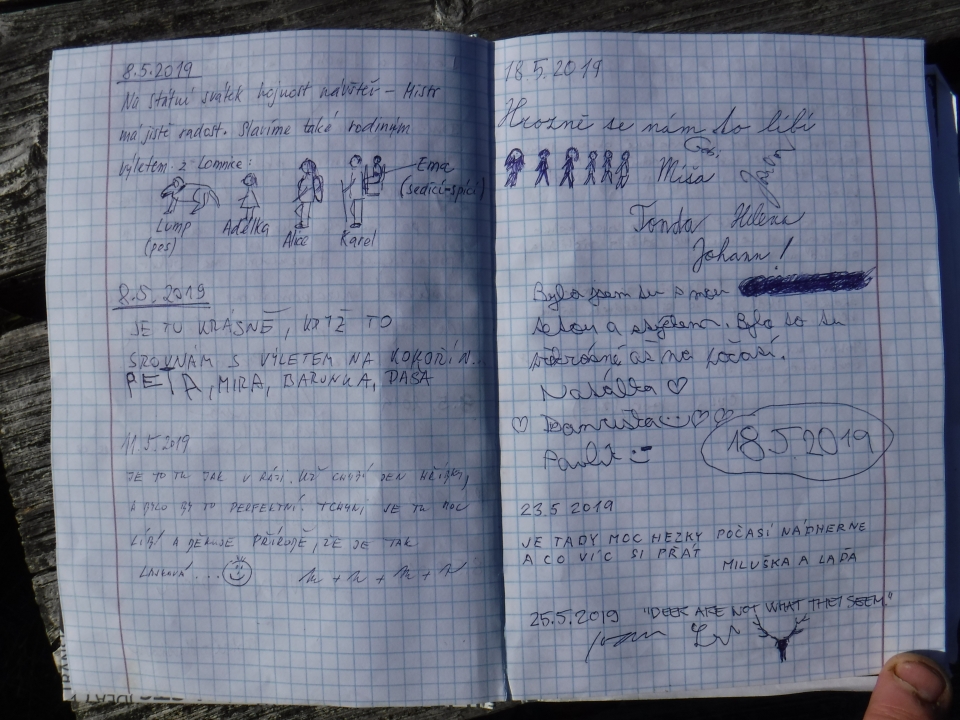 8.5.2019
Na státní svátek hojnost návštěv - Mistr
má jistě radost. Slavíme také rodinným
výletem z Lomnice:
Ema
(sedící-spící)
Lump
(pes)
Adélka
Alice
Karel
8.5.2019
JE TU KRÁSNĚ, KDYŽ TO
SROVNÁM S VÝLETEM NA KOKOŘÍN...
PEŤA, MIRA, BARUNKA, DÁŠA
11.5.2019
JE TO TU JAK V RÁJI. UŽ CHYBÍ JEN HŘÍBKY,
A BYLO BY TO PERFEKTNÍ. TCHYNI SE TU MOC
LÍBÍ A DĚKUJE PŘÍRODĚ, ŽE JE TAK
LASKAVÁ...
18.5.2019
Hrozně se nám to líbí
Míša
Tonda Helena
Johann!
Byla jsem tu s mou
a Bylo to tu
až na počasí.
Natálka ♡
♡ Danuška ♡♡
Pavlík
18.5.2019
23.5 2019
JE TADY MOC HEZKY POČASÍ NÁDHERNE
A CO VÍC SI PŘÁT
MILUŠKA A LAĎA
25.5.2019 "DEER ARE NOT WHAT THEY SEEM."